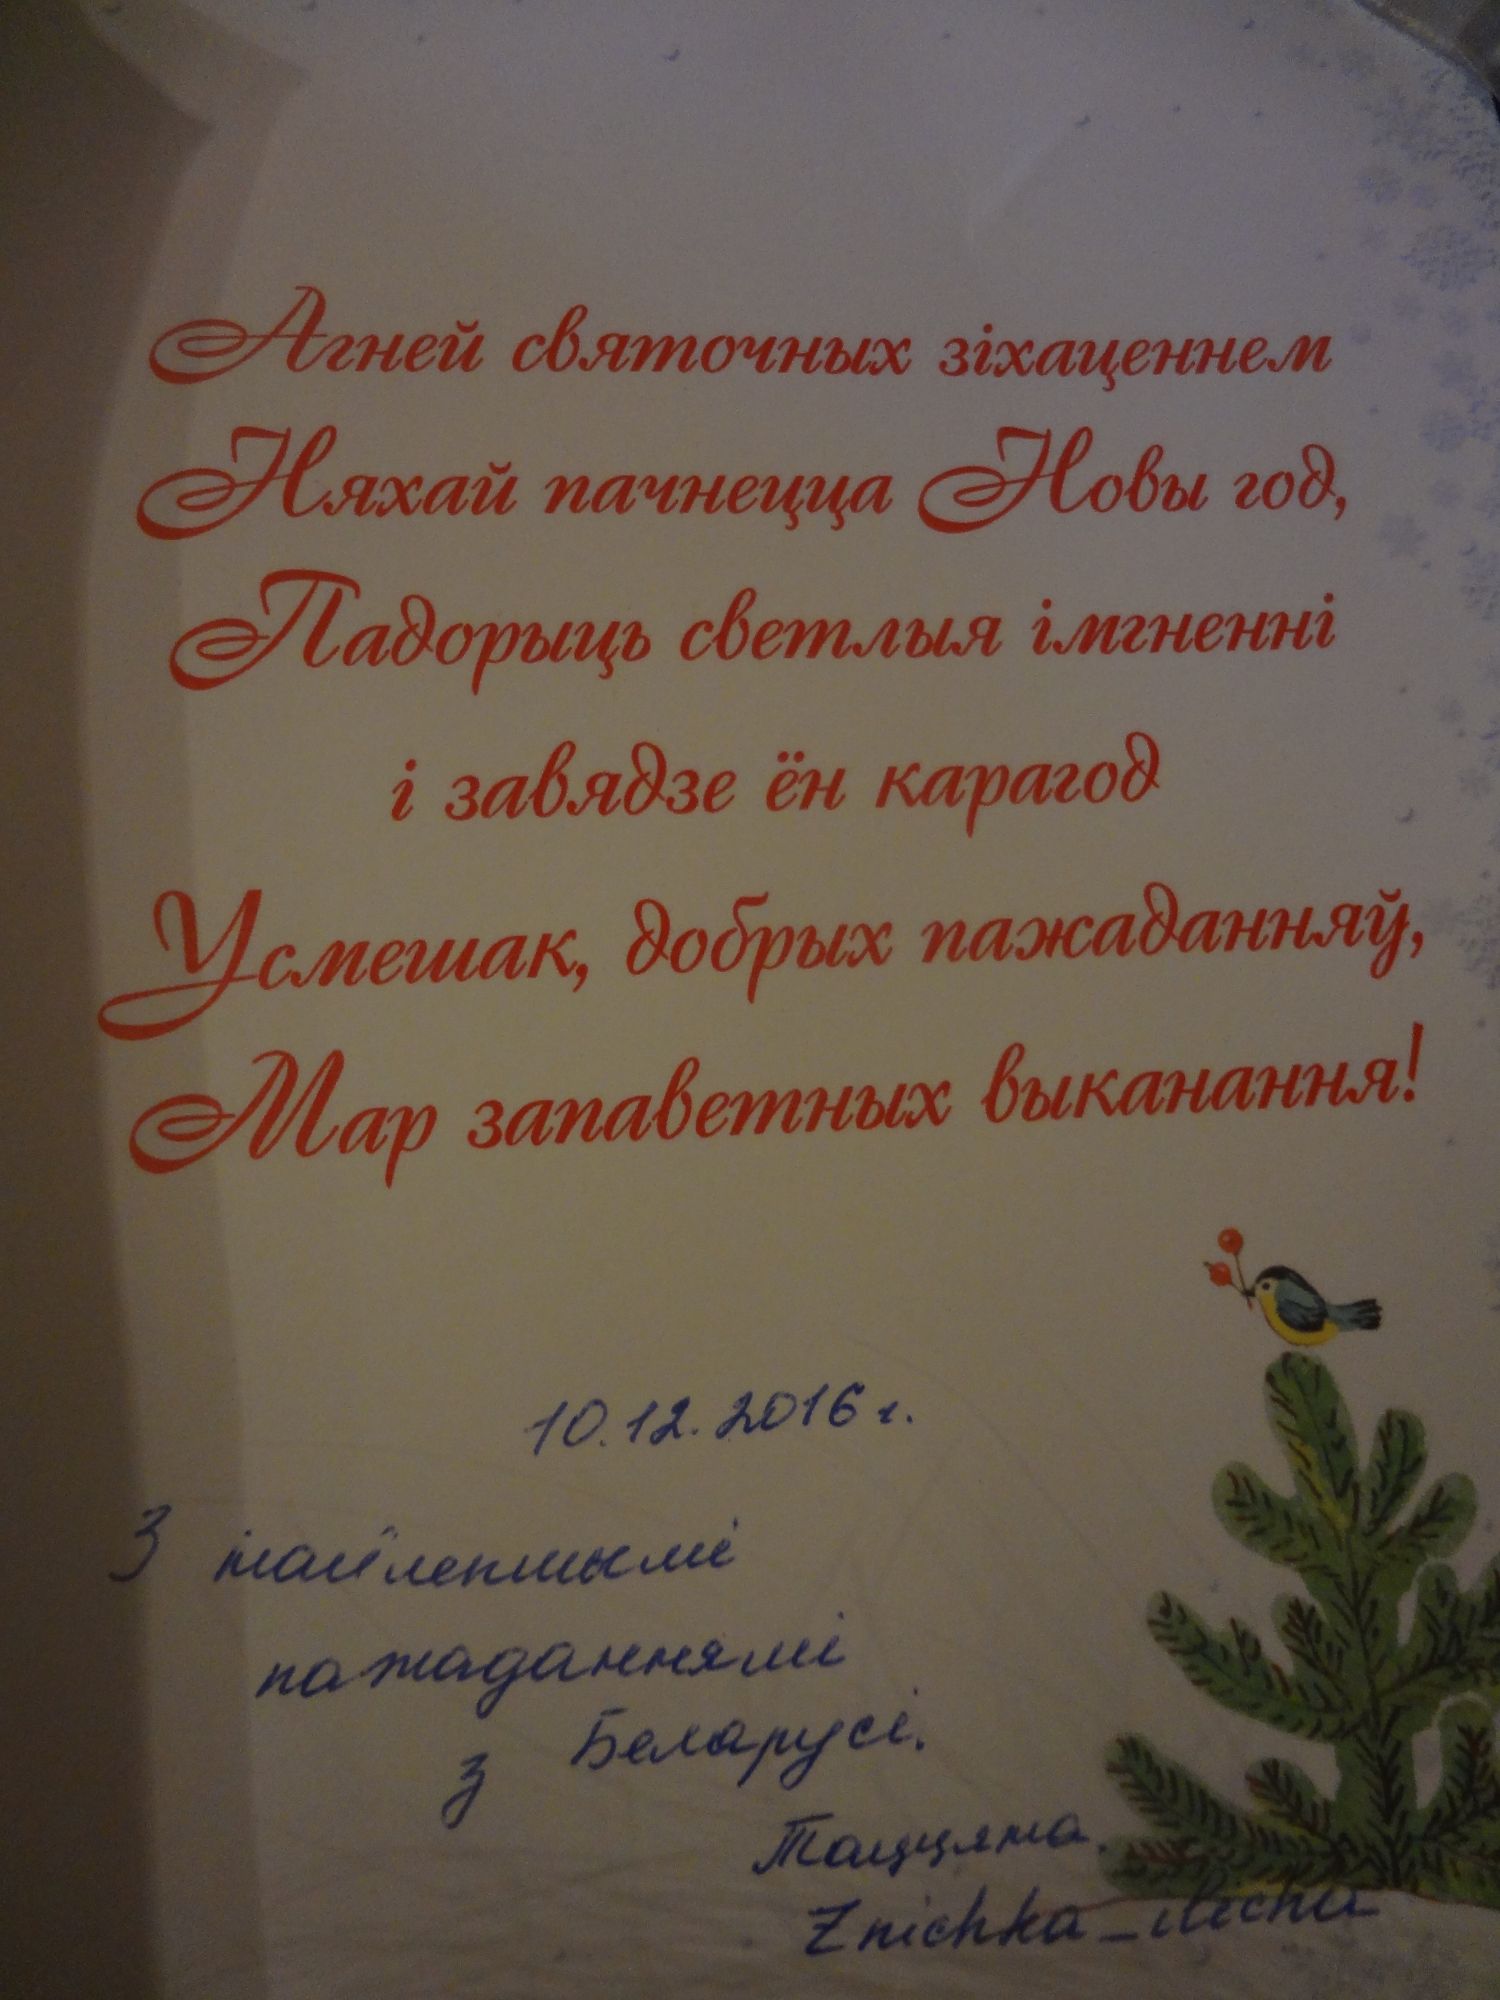 Агней святочных зіхаценнем
Няхай пачнецца Новы год,
Падорыць светлыя імгненні
і завядзе ён карагод
Усмешак, добрых пажаданняў,
Мар запаветных выканання!
10.12.2016 г.
З найлепшымі
пажаданнямі
з Беларусі.
Таццяна.
Znichka_